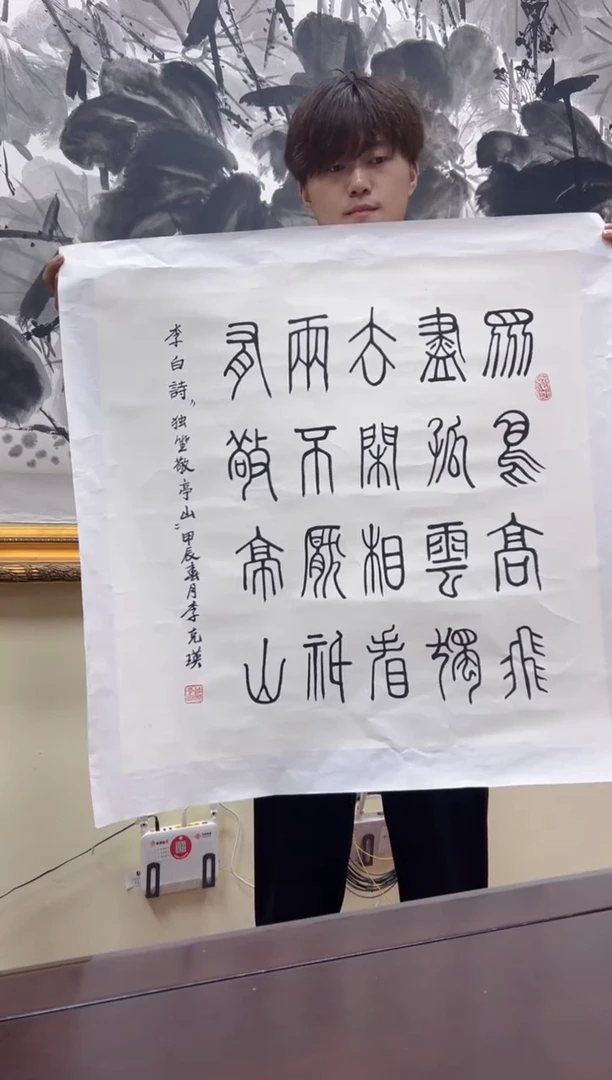 眾鳥高飛
盡孤雲獨
去閑相看
兩不厭祗
有敬亭山
李白詩"独坐敬亭山"甲辰春月李克瑛